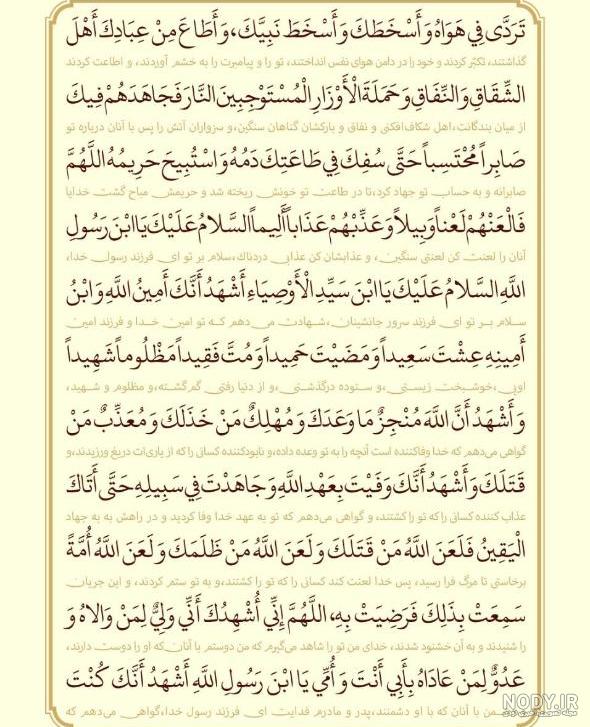 تَرَدَّى فِي هَوَاهُ وَ أَسْخَطَكَ وَ أَسْخَطَ نَبِيَّكَ، وَ أَطَاعَ مِنْ عِبَادِكَ أَهْلَ
گذاشتند، تکبّر کردند و خود را در دامن هوای نفس انداختند، تو را و پیامبرت را به خشم آوردند، و اطاعت کردند
الشِّقَاقِ وَ النِّفَاقِ وَ حَمَلَةَ الْأَوْزَارِ الْمُسْتَوْجِبِينَ النَّارَ فَجَاهَدَهُمْ فِيكَ
از میان بندگانت، اهل شکاف‌افکنی و نفاق و بارکشان گناهان سنگین، و سزاواران آتش را پس با آنان درباره تو
صَابِراً مُحْتَسِباً حَتَّى سُفِكَ فِي طَاعَتِكَ دَمُهُ وَ اسْتُبِيحَ حَرِيمُهُ اللَّهُمَّ
صابرانه و به حساب تو جهاد کرد، تا در طاعت تو خونش ریخته شد و حریمش مباح گشت خدایا
فَالْعَنْهُمْ لَعْناً وَبِيلاً وَ عَذِّبْهُمْ عَذَاباً أَلِيماً السَّلامُ عَلَيْكَ يَا ابْنَ رَسُولِ
آنان را لعنت کن لعنتی سنگین، و عذابشان کن عذابی دردناک، سلام بر تو ای فرزند رسول خدا،
اللَّهِ السَّلامُ عَلَيْكَ يَا ابْنَ سَيِّدِ الْأَوْصِيَاءِ أَشْهَدُ أَنَّكَ أَمِينُ اللَّهِ وَ ابْنُ
سلام بر تو ای فرزند سرور جانشینان، شهادت می‌دهم که تو امین خدا و فرزند امین
أَمِينِهِ عِشْتَ سَعِيداً وَ مَضَيْتَ حَمِيداً وَ مُتَّ فَقِيداً مَظْلُوماً شَهِيداً
اویی، خوشبخت زیستی، و ستوده درگذشتی، و از دنیا رفتی گم گشته، و مظلوم و شهید،
وَ أَشْهَدُ أَنَّ اللَّهَ مُنْجِزٌ مَا وَعَدَكَ وَ مُهْلِكٌ مَنْ خَذَلَكَ وَ مُعَذِّبٌ مَنْ
گواهی می‌دهم که خدا وفاکننده است آنچه را به تو وعده داده، و نابودکننده کسانی را که از یاری‌ات دریغ ورزیدند، و
قَتَلَكَ وَ أَشْهَدُ أَنَّكَ وَفَيْتَ بِعَهْدِ اللَّهِ وَ جَاهَدْتَ فِي سَبِيلِهِ حَتَّى أَتَاكَ
عذاب کننده کسانی را که تو را کشتند، و گواهی می‌دهم که تو به عهد خدا وفا کردید و در راهش به به جهاد
الْيَقِينُ فَلَعَنَ اللَّهُ مَنْ قَتَلَكَ وَ لَعَنَ اللَّهُ مَنْ ظَلَمَكَ وَ لَعَنَ اللَّهُ أُمَّةً
برخاستی تا مرگ فرا رسید، پس خدا لعنت کند کسانی را که تو را کشتند، و به تو ستم کردند، و این جریان
سَمِعَتْ بِذَلِكَ فَرَضِيَتْ بِهِ، اللَّهُمَّ إِنِّي أُشْهِدُكَ أَنِّي وَلِيٌّ لِمَنْ وَالاهُ وَ
را شنیدند و به آن خشنود شدند، خدای من تو را شاهد می‌گیرم که من دوستم با آنان که او را دوست دارند،
عَدُوٌّ لِمَنْ عَادَاهُ بِأَبِي أَنْتَ وَ أُمِّي يَا ابْنَ رَسُولِ اللَّهِ أَشْهَدُ أَنَّكَ كُنْتَ
دشمن با آنان که با او دشمنند، پدر و مادرم فدایت ای فرزند رسول خدا، گواهی می‌دهم که
NODY.IR